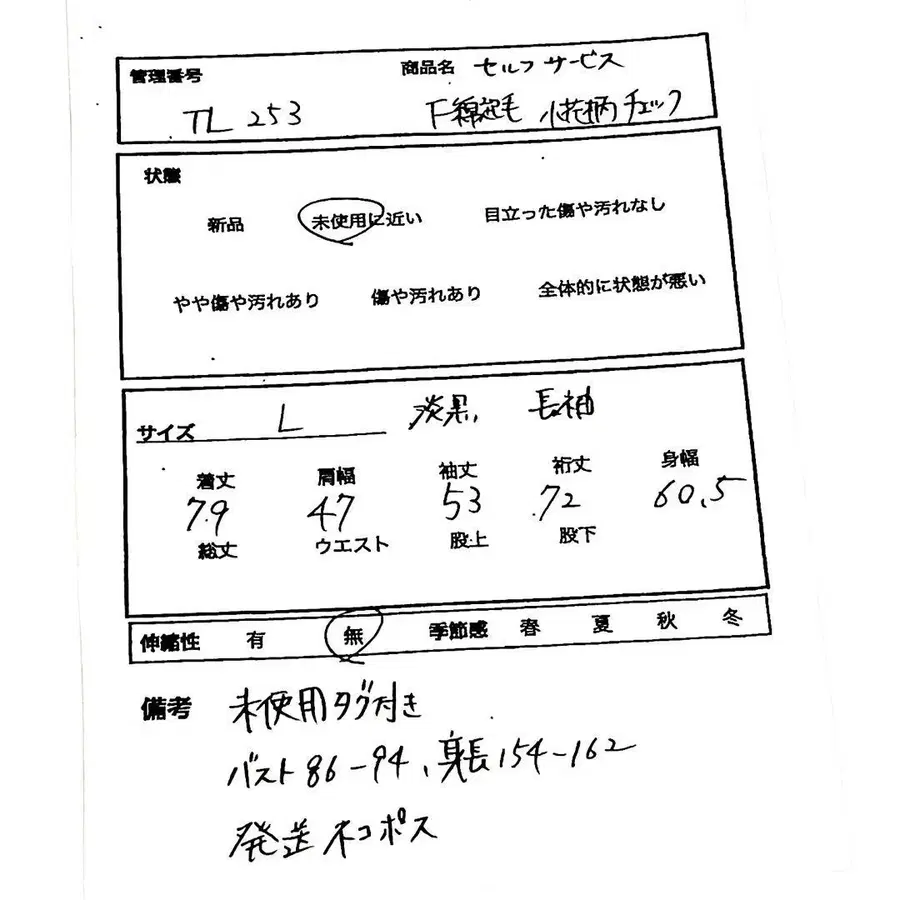 管理番号 商品名 セルフサービス
TL 253 F綿起毛 小花柄チェック
状態
新品 未使用に近い 目立った傷や汚れなし
やや傷や汚れあり 傷や汚れあり 全体的に状態が悪い
サイズ L 淡黒 長袖
着丈 肩幅 袖丈 裄丈 身幅
79 47 53 72 60.5
総丈 ウエスト 股上 股下
伸縮性 有 無 季節感 春 夏 秋 冬
備考 未使用タグ付き
バスト86-94、身長154-162
発送ネコポス